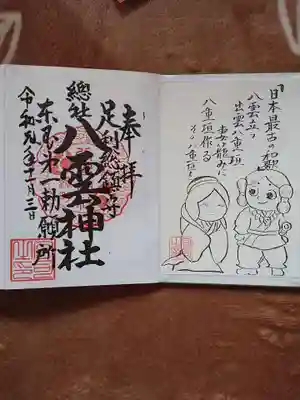 『日本最古の和歌』
八雲立つ
出雲八重垣
妻籠みに
八重垣作る
その八重垣を
奉拝
足利総鎮守
總社八雲神社
東国第一勅願所
令和元年十一月三日